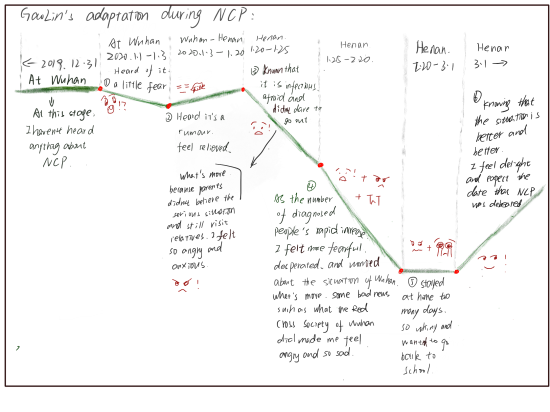 GaoLin's adaptation during NCP:
← 2019.12.31
At Wuhan
At this stage,
I haven't heard
anything about
NCP.
At Wuhan
2020.1.1 - 1.3
Heard of it
① a little fear
!?
Wuhan - Henan
2020.1.3 - 1.20
② Heard it's a
rumour.
feel relieved.
What's more
because parents
didn't believe the
serious situation
and still visit
relatives. I felt
so angry and
anxious.
!
Henan
1.20 - 1.25
③ Known that
it is infectious,
afraid and
didn't dare to
go out
!
Henan
1.25 - 2.20.
! + +
④
As the number
of diagnosed
people's rapid increase
I felt more fearful,
desperated, and worried
about the situation of Wuhan.
What's more. some bad news
such as what the Red
Cross Society of Wuhan
did made me feel
angry and so sad.
Henan.
2.20 - 3.1
+
⑤ stayed
at home too
many days.
so and
wanted to go
back to
school.
Henan
3.1 →
knowing that
the situation is
better and
better.
I feel delight
and expect the
date that NCP
was defeated.
!